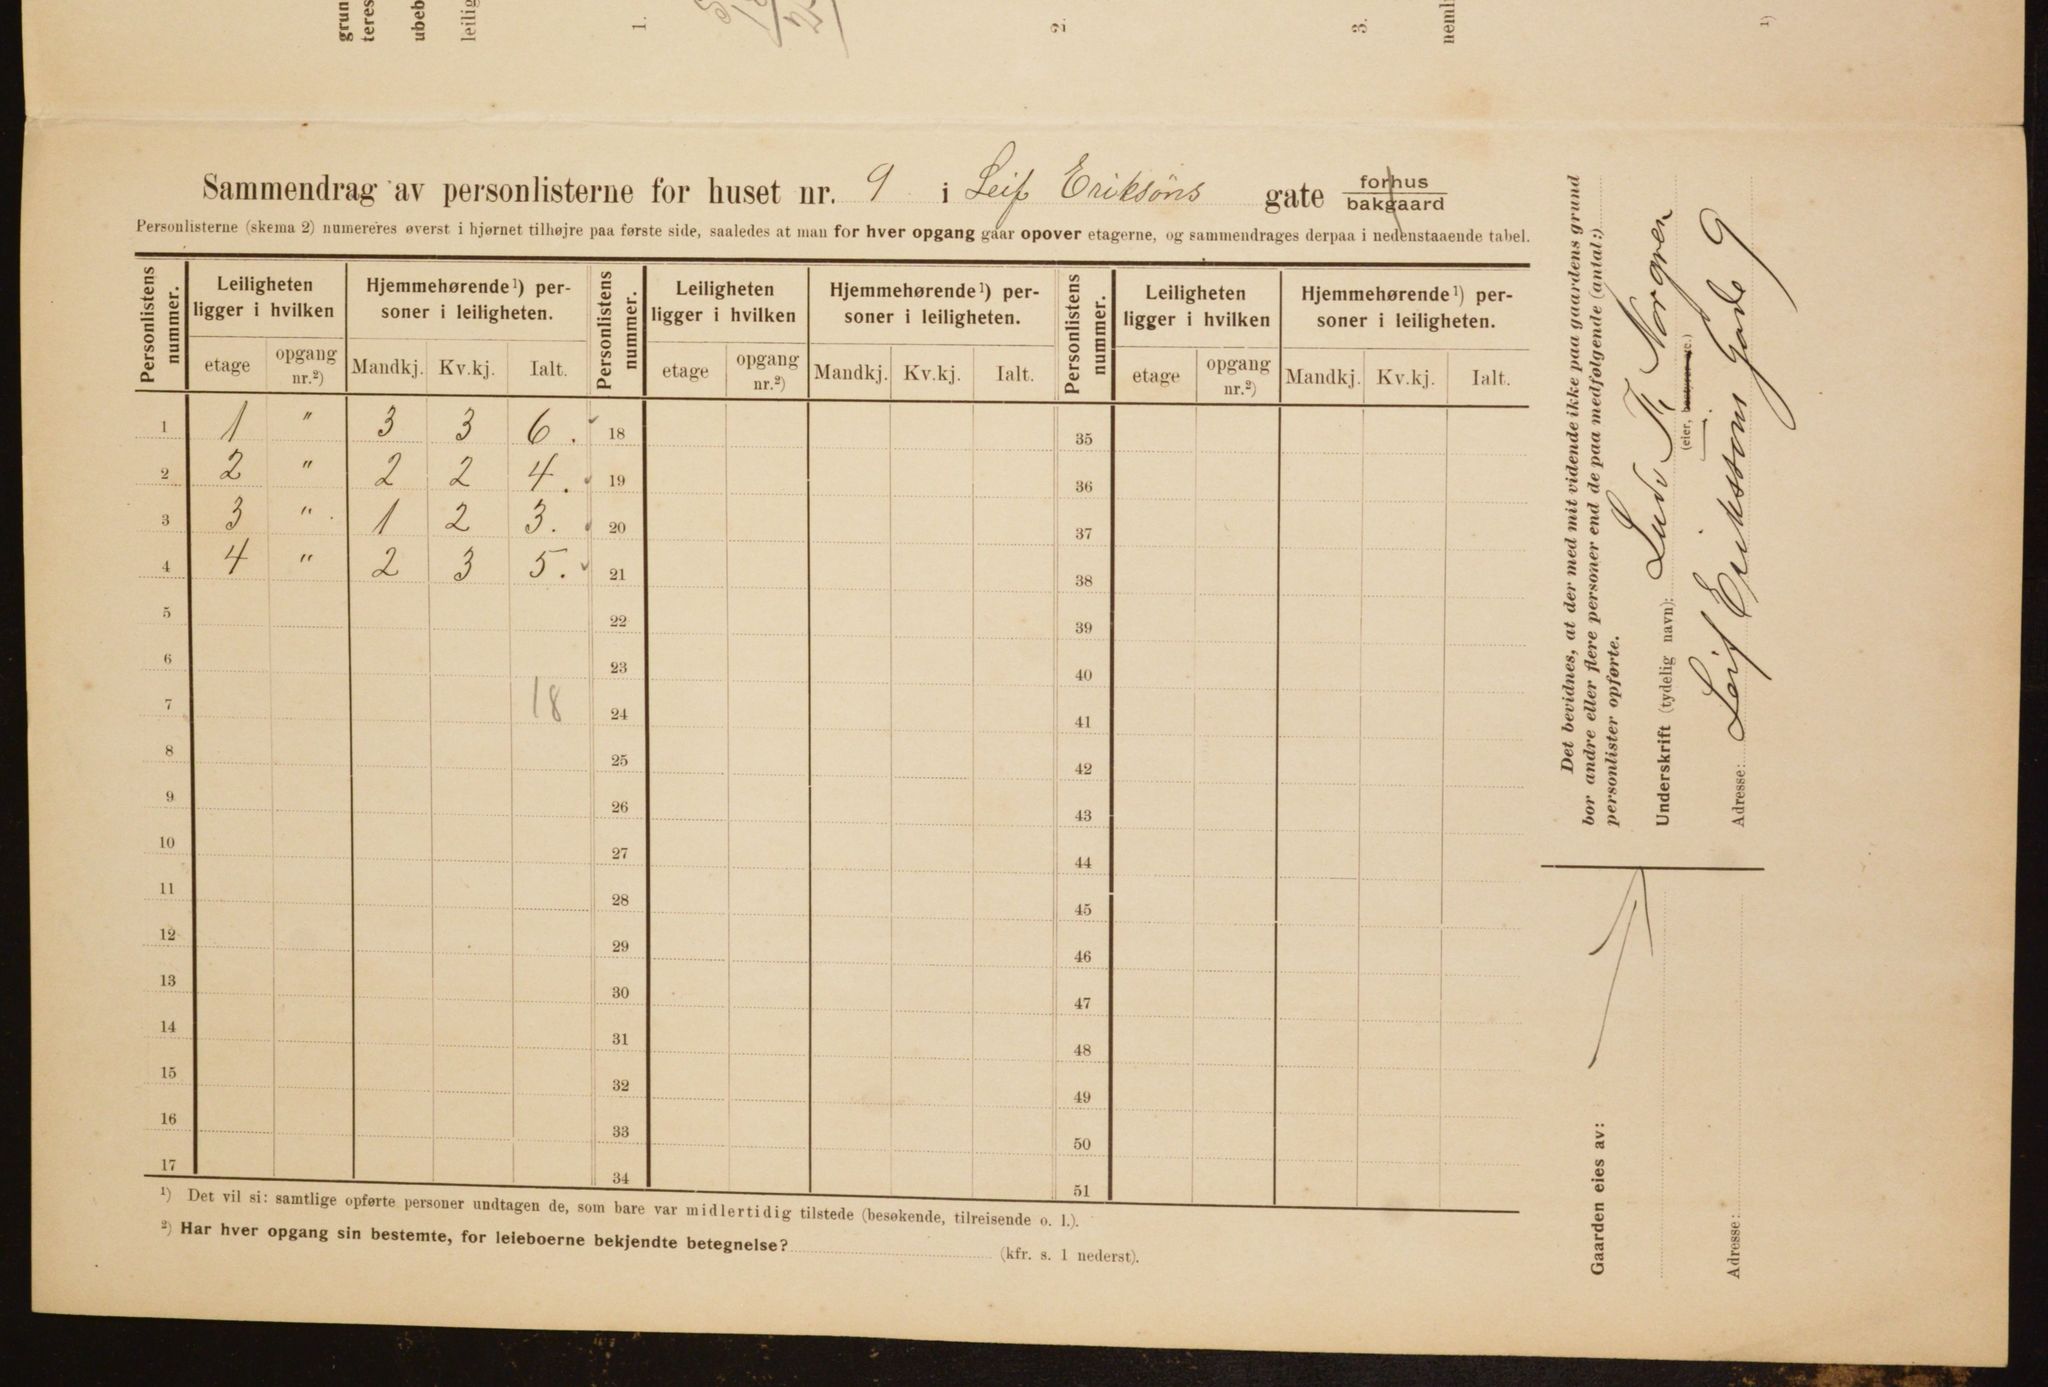 grun
teres
ubeb
leilig
1.
2.
3.
neml
1)
Sammendrag av personlisterne for huset nr. 9 i Leif Eriksöns gate forhus
bakgaard
Personlisterne (skema 2) numereres øverst i hjørnet tilhøjre paa første side, saaledes at man for hver opgang gaar opover etagerne, og sammendrages derpaa i nedenstaaende tabel.
Personlistens nummer. Leiligheten ligger i hvilken Hjemmehørende¹) personer i leiligheten. Personlistens nummer. Leiligheten ligger i hvilken Hjemmehørende¹) personer i leiligheten. Personlistens nummer. Leiligheten ligger i hvilken Hjemmehørende¹) personer i leiligheten.
etage opgang nr.²) Mandkj. Kv.kj. Ialt. etage opgang nr.²) Mandkj. Kv.kj. Ialt. etage opgang nr.²) Mandkj. Kv.kj. Ialt.
1 1 " 3 3 6. 18 35
2 2 " 2 2 4. 19 36
3 3 " 1 2 3. 20 37
4 4 " 2 3 5. 21 38
5 22 39
6 23 40
7 18 24 41
8 25 42
9 26 43
10 27 44
11 28 45
12 29 46
13 30 47
14 31 48
15 32 49
16 33 50
17 34 51
¹) Det vil si: samtlige opførte personer undtagen de, som bare var midlertidig tilstede (besøkende, tilreisende o. l.).
²) Har hver opgang sin bestemte, for leieboerne bekjendte betegnelse? (kfr. s. 1 nederst).
Det bevidnes, at der med mit vidende ikke paa gaardens grund
bor andre eller flere personer end de paa medfølgende (antal:)
personlister opførte.
Underskrift (tydelig navn): Ludv Fr Norgren
(eier, bestyrer etc.)
Adresse: Leif Eriksons Gade 9
Gaarden eies av:
Adresse: